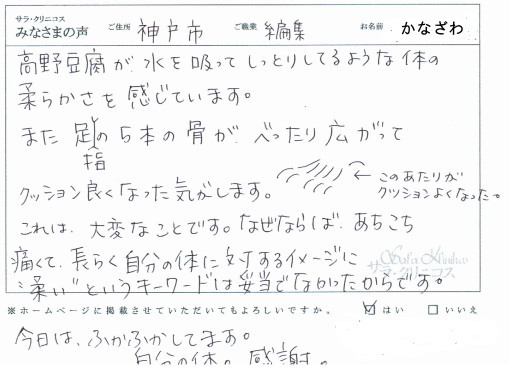 サラ・クリニコス
みなさまの声 ご住所 神戸市 ご職業 編集 お名前 かなざわ
高野豆腐が水を吸ってしっとりしてるような体の
柔らかさを感じています。
また足の5本の骨が、べったり広がって
指
クッション良くなった気がします。 ← このあたりが
クッションよくなった。
これは、大変なことです。なぜならば、あちこち
痛くて、長らく自分の体に対するイメージに
Sara Klinikos
サラ・クリニコス
"柔い"というキーワードは妥当でなかったからです。
※ホームページに掲載させていただいてもよろしいですか。 ☑ はい □ いいえ
今日は、ふかふかしてます。
自分の体。感謝。